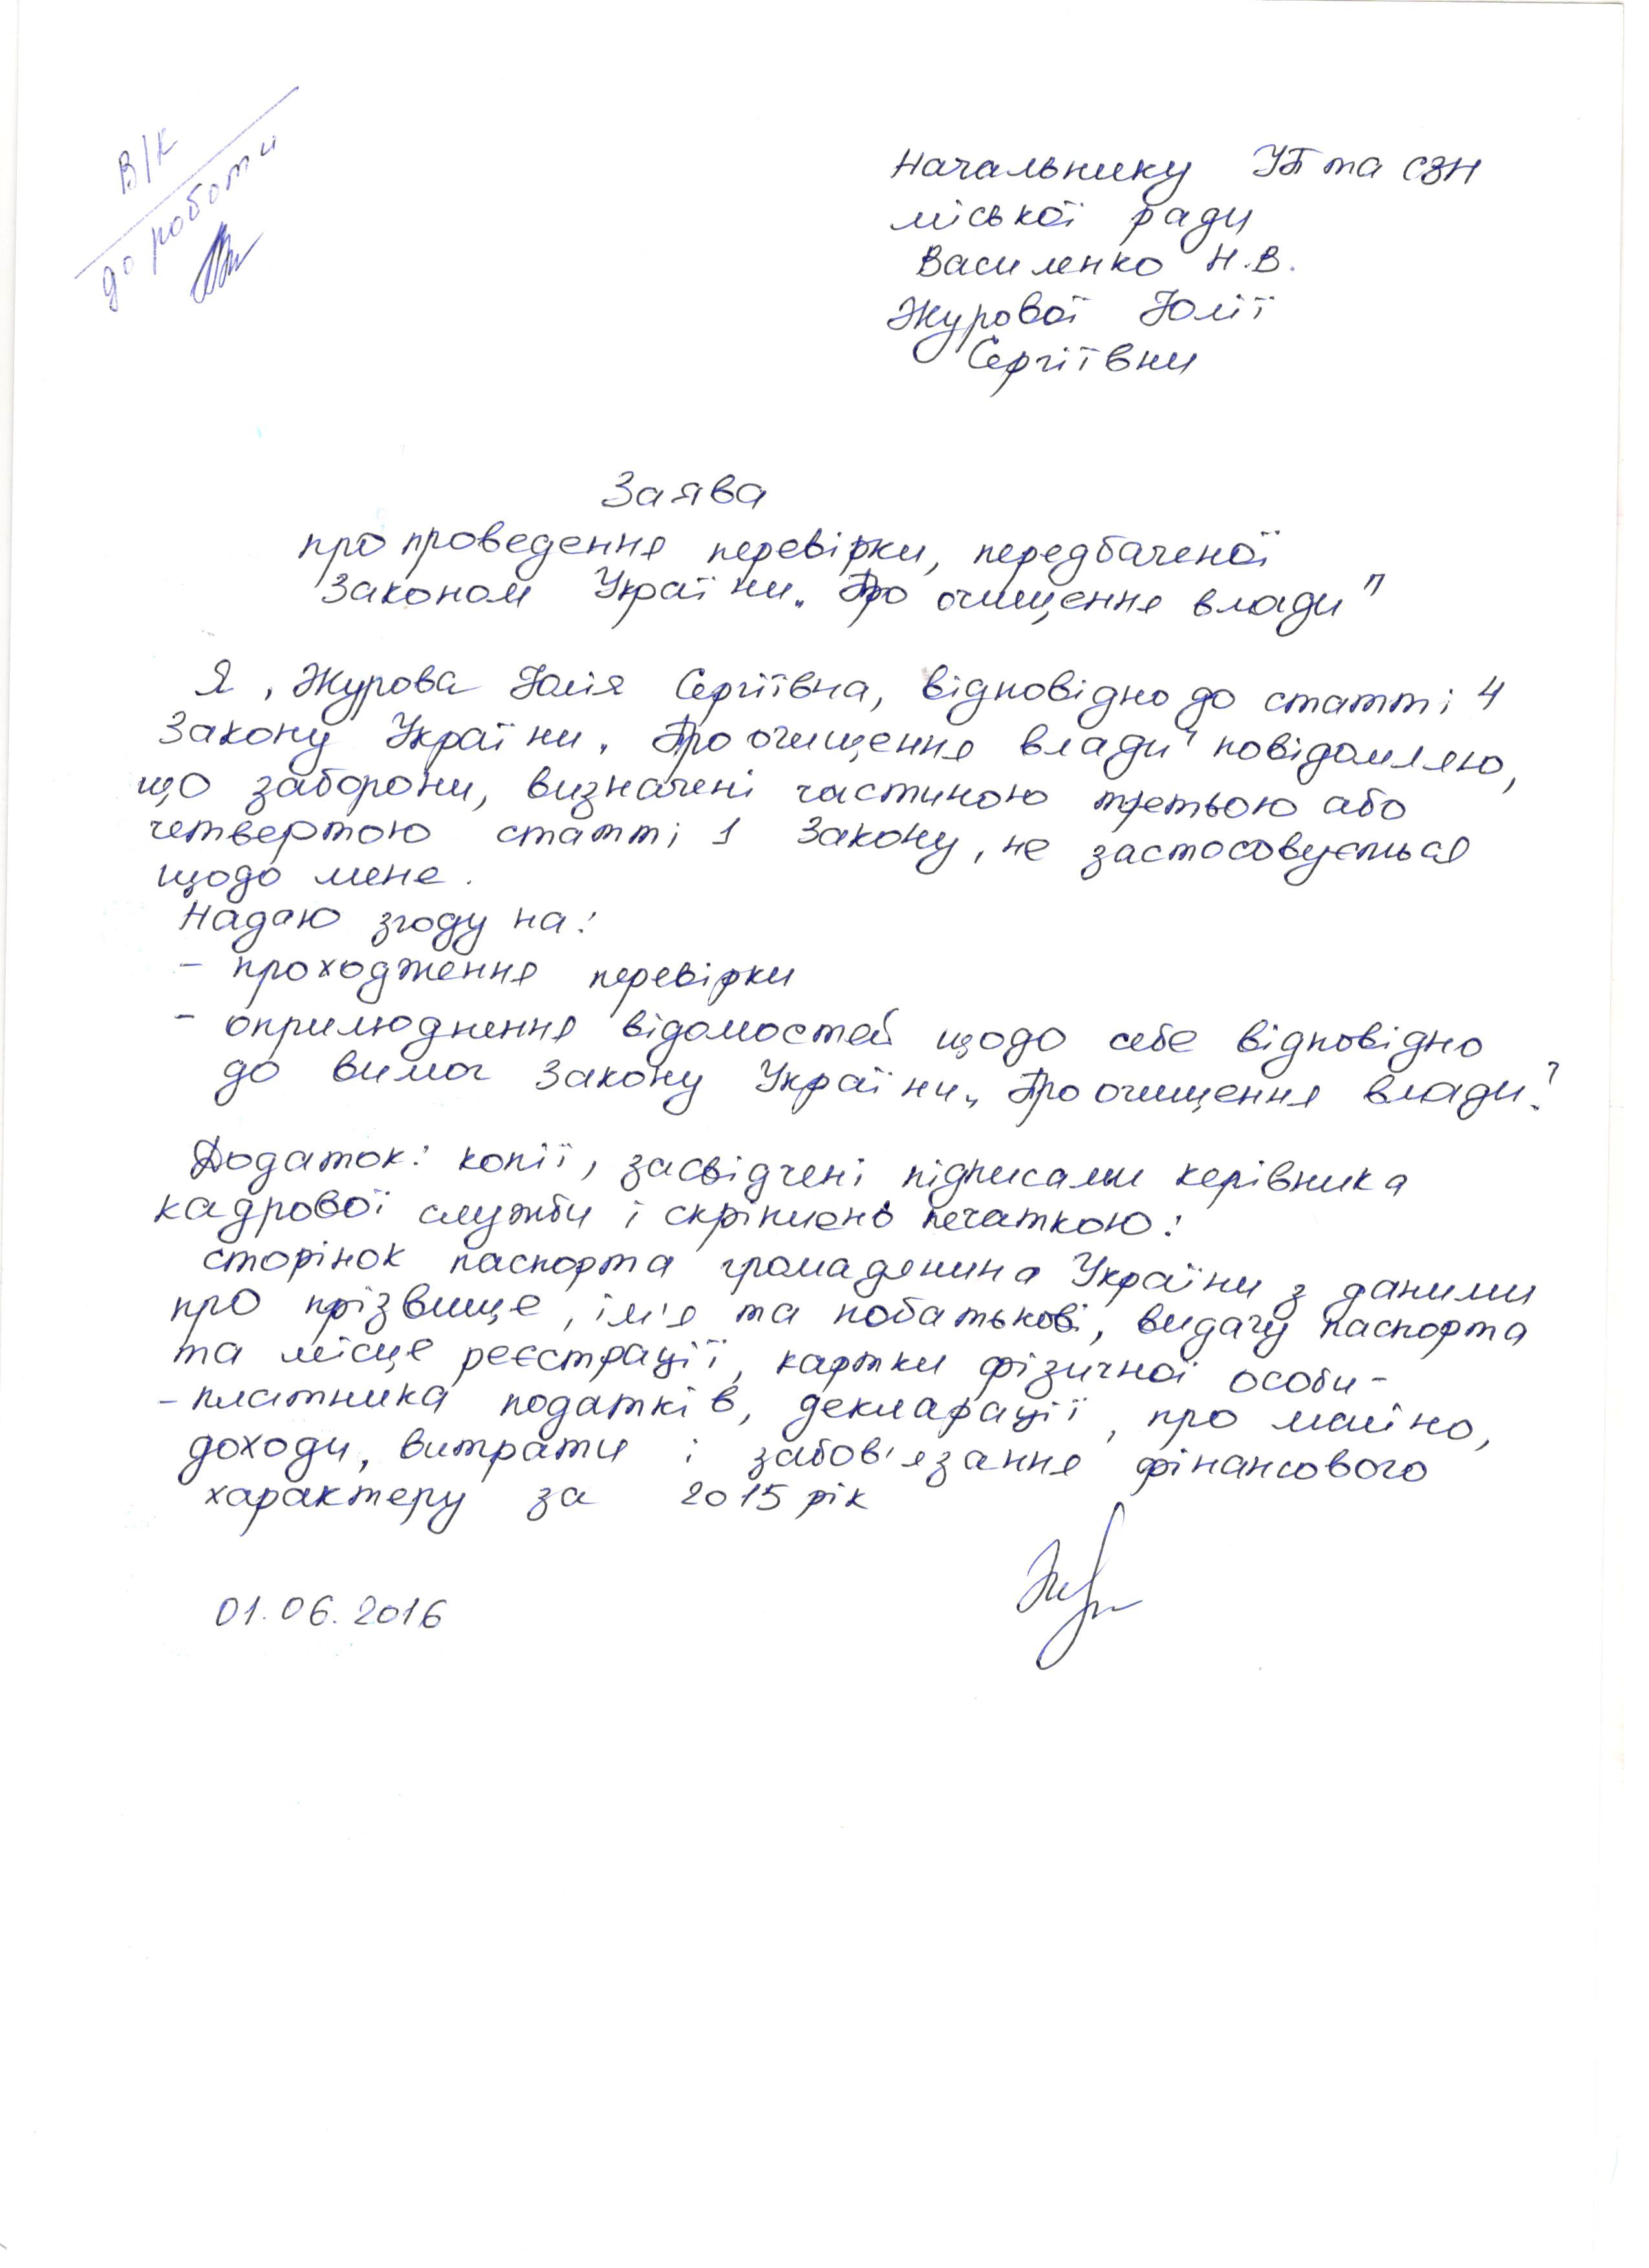 В/к
до роботи
Начальнику УП та СЗН
міської ради
Василенко Н.В.
Журової Юлії
Сергіївни
Заява
про проведення перевірки, передбаченої
Законом України „Про очищення влади"
Я, Журова Юлія Сергіївна, відповідно до статті 4
Закону України „Про очищення влади" повідомляю,
що заборони, визначені частиною третьою або
четвертою статті 1 Закону, не застосовується
щодо мене.
Надаю згоду на:
- проходження перевірки
- оприлюднення відомостей щодо себе відповідно
до вимог Закону України „Про очищення влади".
Додаток: копії, засвідчені підписами керівника
кадрової служби і скріплено печаткою:
сторінок паспорта громадянина України з даними
про прізвище, ім'я та побатькові, видачу паспорта
та місце реєстрації, картки фізичної особи-
- платника податків, декларації, про майно,
доходи, витрати і забов'язання фінансового
характеру за 2015 рік
01.06.2016